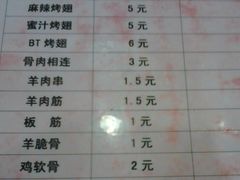 麻辣烤翅 5 元
蜜汁烤翅 5 元
BT 烤翅 6 元
骨肉相连 3 元
羊肉串 1.5 元
羊肉筋 1.5 元
板 筋 1 元
羊脆骨 1 元
鸡软骨 2 元